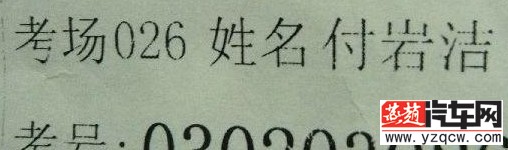 考场026 姓名付岩洁
考号:
燕赵汽车网
www.yzqcw.com